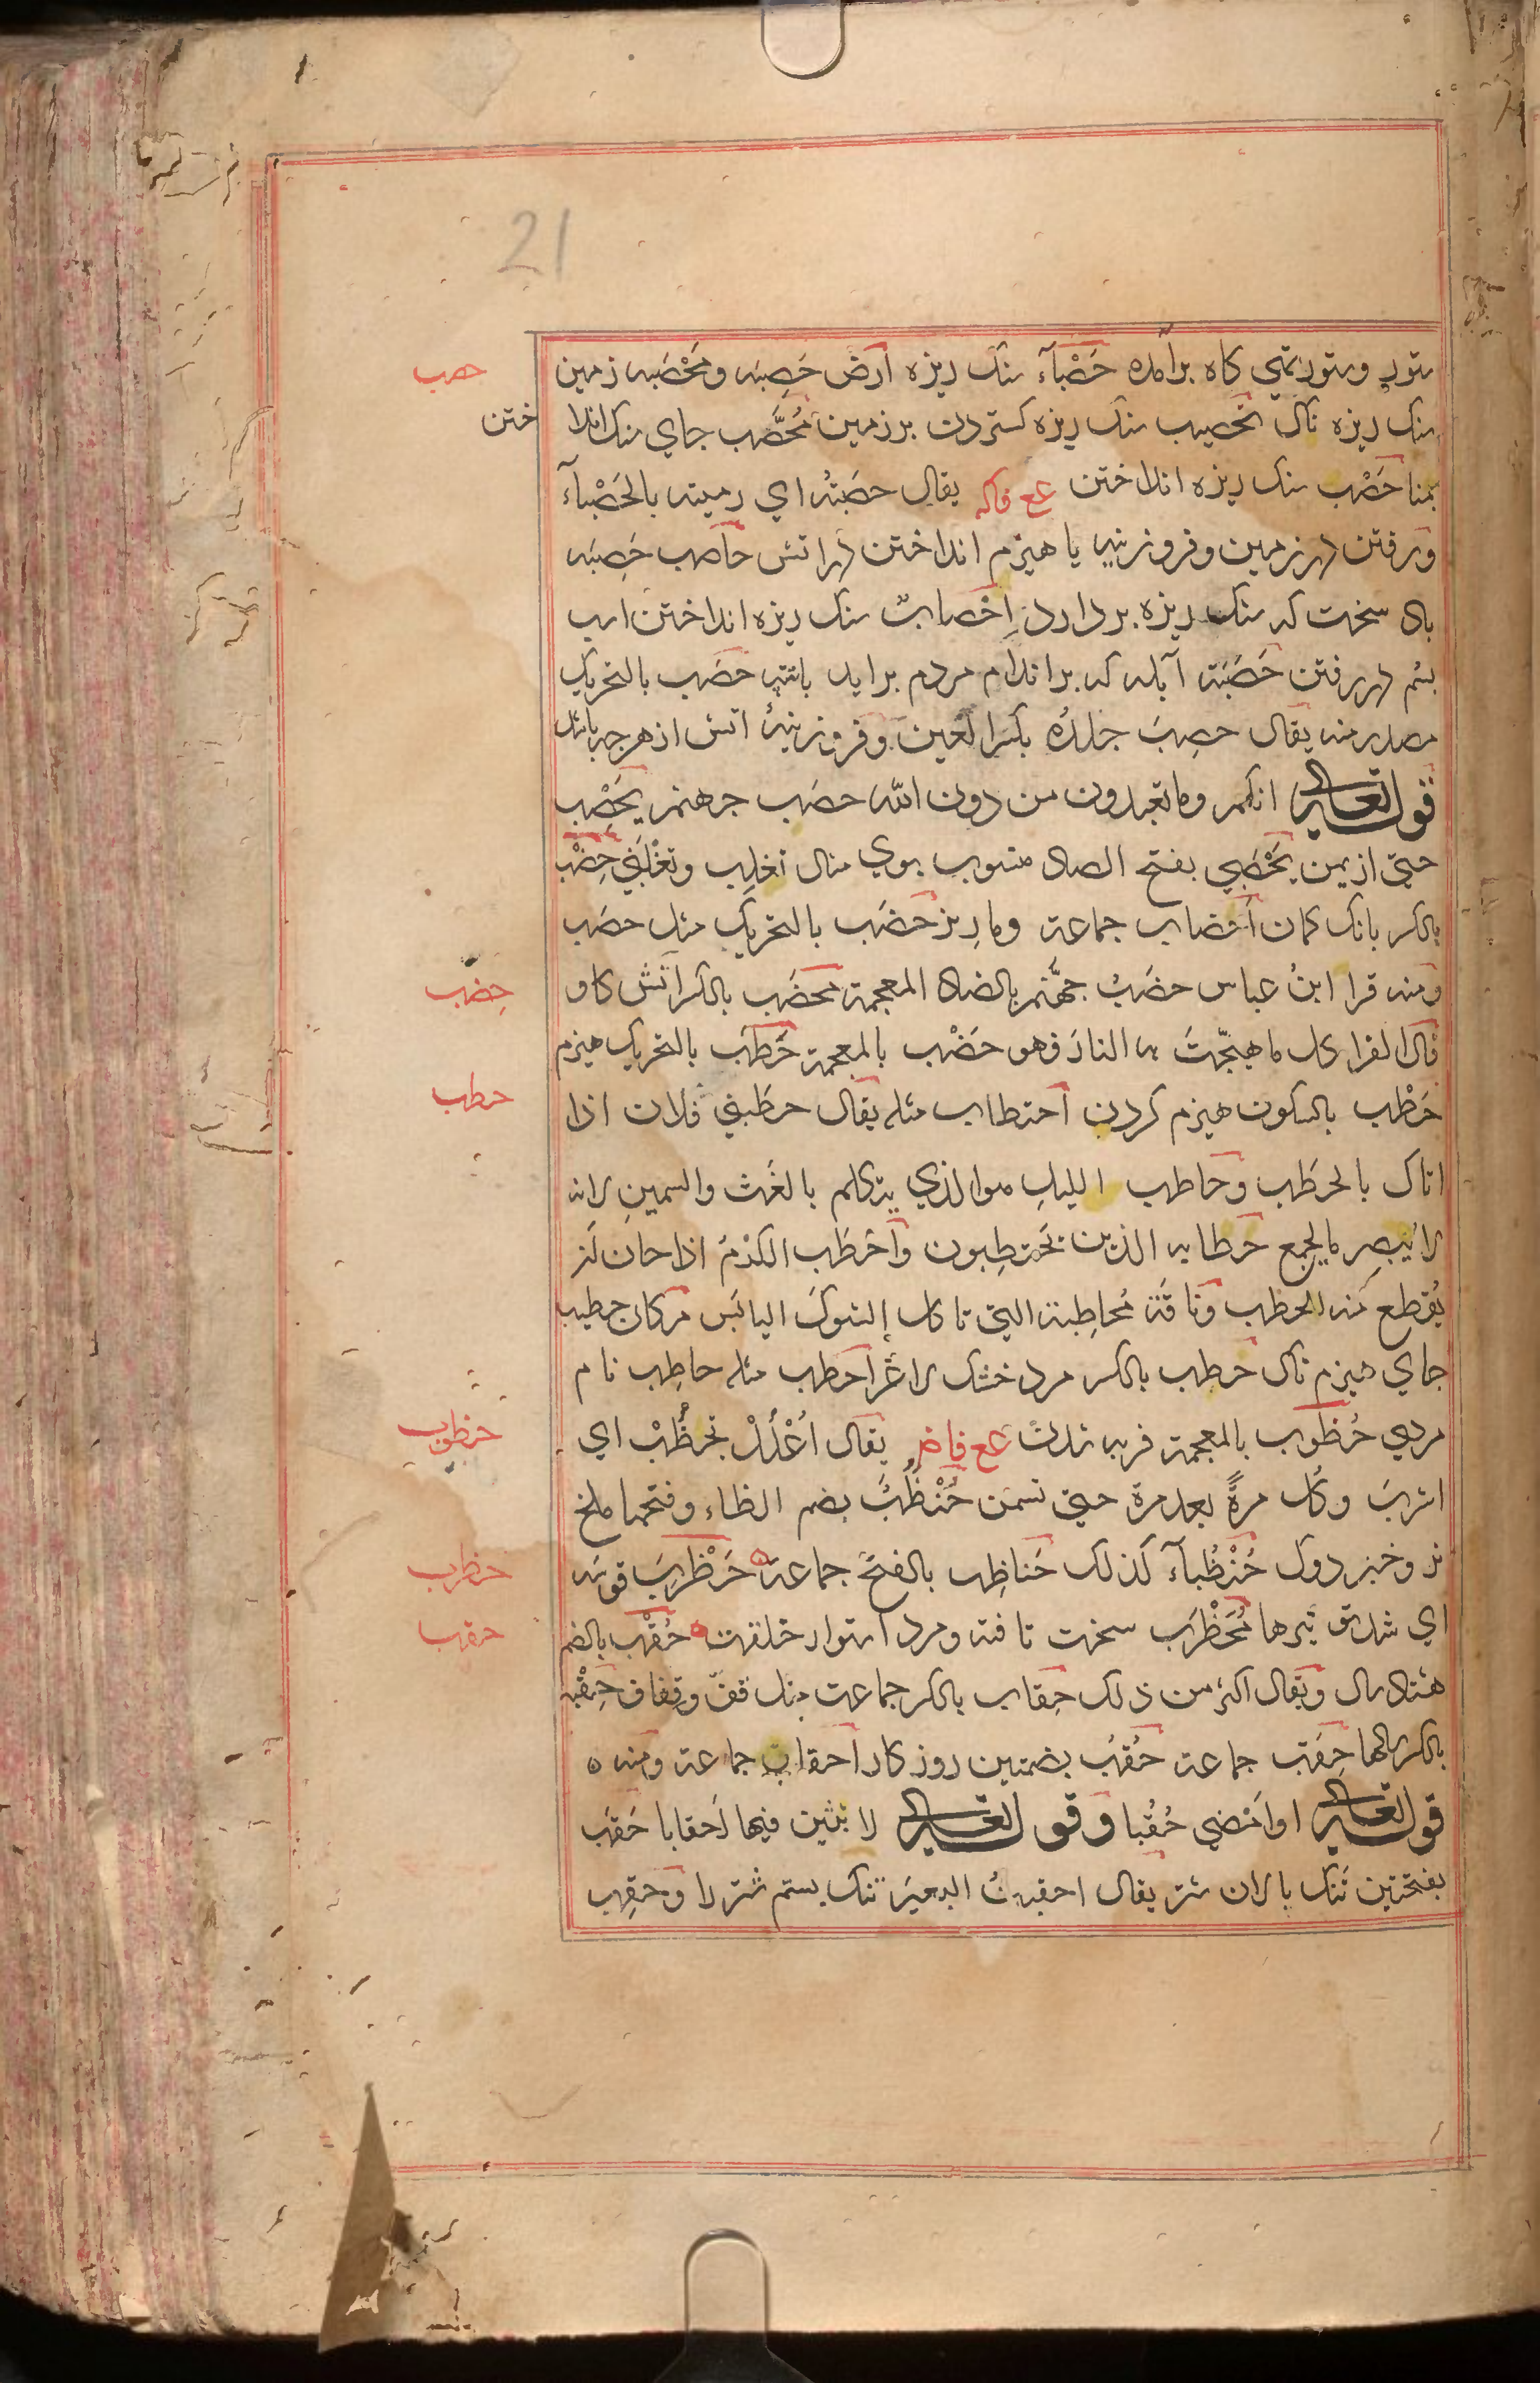 21
ستور وستور تهي كاه برآمده حَصْبآء سنك ريزه ارض حَصِبَه ومَحْصَبه زمين
سنك ريزه ناك تحصيب سنك ريزه كستردن بر زمين مُحَصَّب جاي سنك اندا
ختن
بمنا حَصْب سنك ريزه انداختن ع ع فاكه يقال حصَبتُه اي رميته بالحَصْبآء
ورفتن در زمين وفروزينه يا هيزم انداختن در اتش حاصب حَصِبَه
باد سخت كه سنك ريزه بردارد إحْصابٌ سنك ريزه انداختن اسب
بسُم در رفتن حَصَبَة آبله كه بر اندام مردم برايد باتب حصَب بالتحريك
مصدر منه يقال حصِبَ جلدُه بكسر العين وفروزينهٔ اتش از هرجه باشد
قوله تعالى انكم وما تعبدون من دون الله حصَب جهنم يَحْصِب
حيّ از يمن يَحْصَبي بفتح الصاد منسوب بوي مثال تغلِب وتغْلَبيّ حِضْب
بالكسر بانك كمان أحضاب جماعة ومار نر حضَب بالتحريك مثل حصَب
ومنه قرا ابنُ عباس حضَبُ جهَنّم بالضاد المعجمة محضَب بالكسر آتش كاو
قال الفرا كل ما هيّجتَ به النارَ فهو حَضْب بالمعجمة حَطَب بالتحريك هيزم
حَطْب بالسكون هيزم كردن احتطاب مثله يقال حطَبني فلان اذا
اتاك بالحطَب وحاطب الليلِ هو الذي يتكلم بالغَث والسمينِ لانه
لا يُبصِر ما يجمع حطابه الذين يحتطِبون وأحْطَب الكَرْمُ اذا حان لَنْ
يُقطع منه الحطب وناقَة مُحاطِبة التي تاكل الشوكَ اليابس مركان حطيب
جاي هيزم ناك حطب بالكسر مرد خشك لاغر احطب مثله حاطِب نام
مردي حُظُوب بالمعجمة فربه شدنُ ع ع فاض يقال اُعْلُلْ تحظُبْ اي
اشربَ وكُل مرةً بعد مرة حتى تسمن حُنْظُبٌ بضم الظاء وفتحها ملخ
نر وخبزدوك حُنْظُبآء كذلك حَناظِب بالفتح جماعة حَظْربَ قوسَه
اي شد توتيرها مُحَظْرَب سخت تافته ومرد استوار خلقت حُقْب بالضم
هشتاد سال ويقال اكثر من ذلك حِقاب بالكسر جماعت مثل قفّ وقِفاف حِقْبه
بالكسر سالها حِقَب جماعة حُقُب بضمتين روز كار احقاب جماعة ومنه ه
قوله تعالى او امْضي حُقُبا وقوله تعالى لابثين فيها احقابا حَقَب
بفتحتين تنك پالان شتر يقال احقبتُ البعيرَ تنك بستم شتر را وحقِب
حصب
حِضب
حطب
حظوب
حظرب
حقب